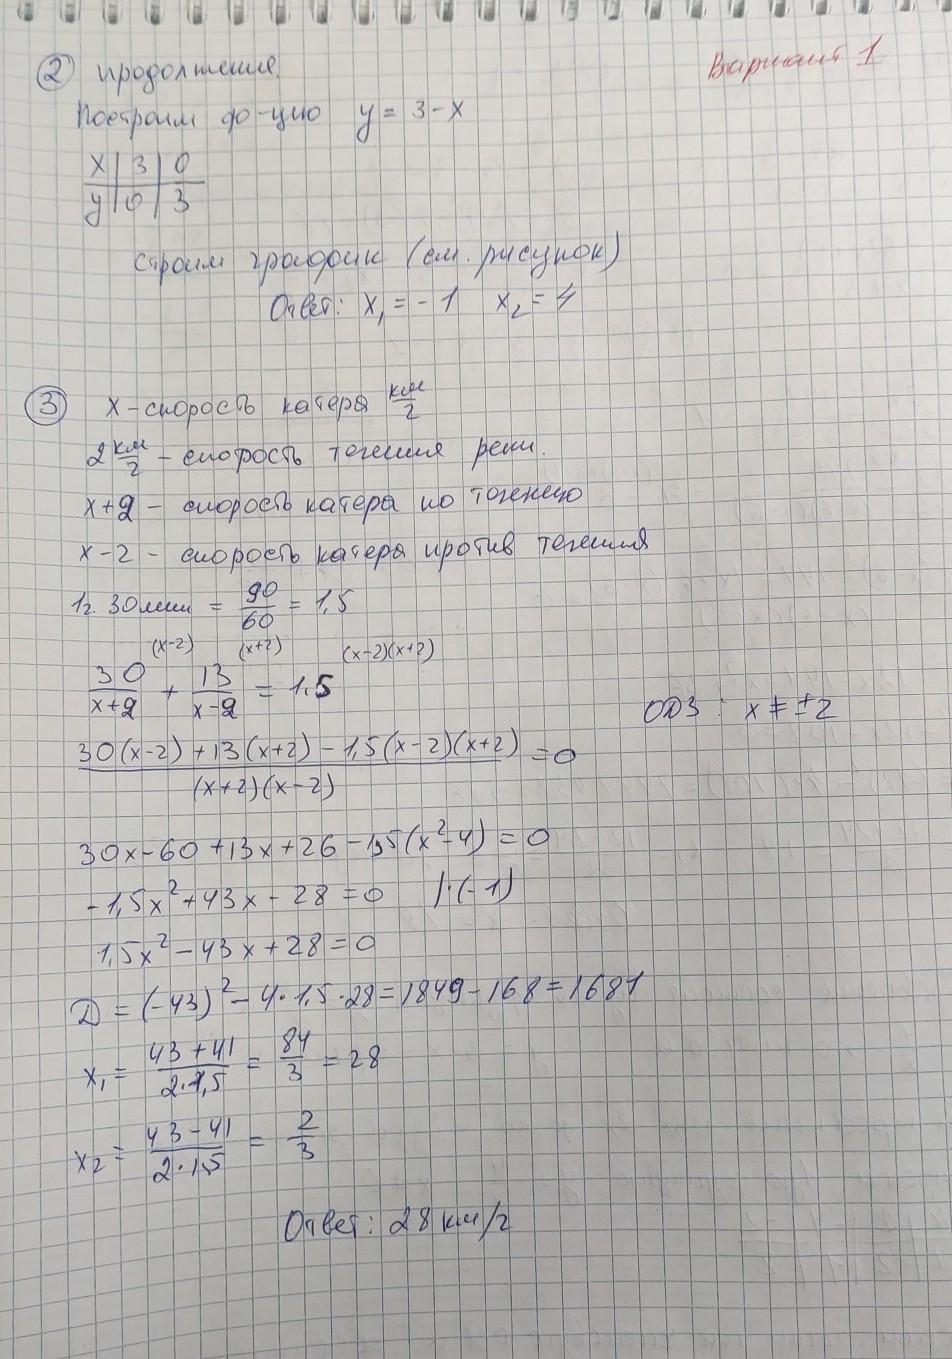 Вариант 1
② продолжение
Построим ф-цию y = 3 - x
x | 3 | 0
y | 0 | 3
Строим график (см. рисунок)
Ответ: x₁ = -1 x₂ = 4
③ x - скорость катера км/ч
2 км/ч - скорость течения реки.
x+2 - скорость катера по течению
x-2 - скорость катера против течения
1ч. 30мин = 90/60 = 1,5
(x-2) (x+2) (x-2)(x+2)
30/(x+2) + 13/(x-2) = 1,5
ОДЗ : x ≠ ±2
(30(x-2) + 13(x+2) - 1,5(x-2)(x+2))/((x+2)(x-2)) = 0
30x - 60 + 13x + 26 - 1,5(x² - 4) = 0
-1,5x² + 43x - 28 = 0 |·(-1)
1,5x² - 43x + 28 = 0
D = (-43)² - 4·1,5·28 = 1849 - 168 = 1681
x₁ = (43 + 41)/(2·1,5) = 84/3 = 28
x₂ = (43 - 41)/(2·1,5) = 2/3
Ответ: 28 км/ч